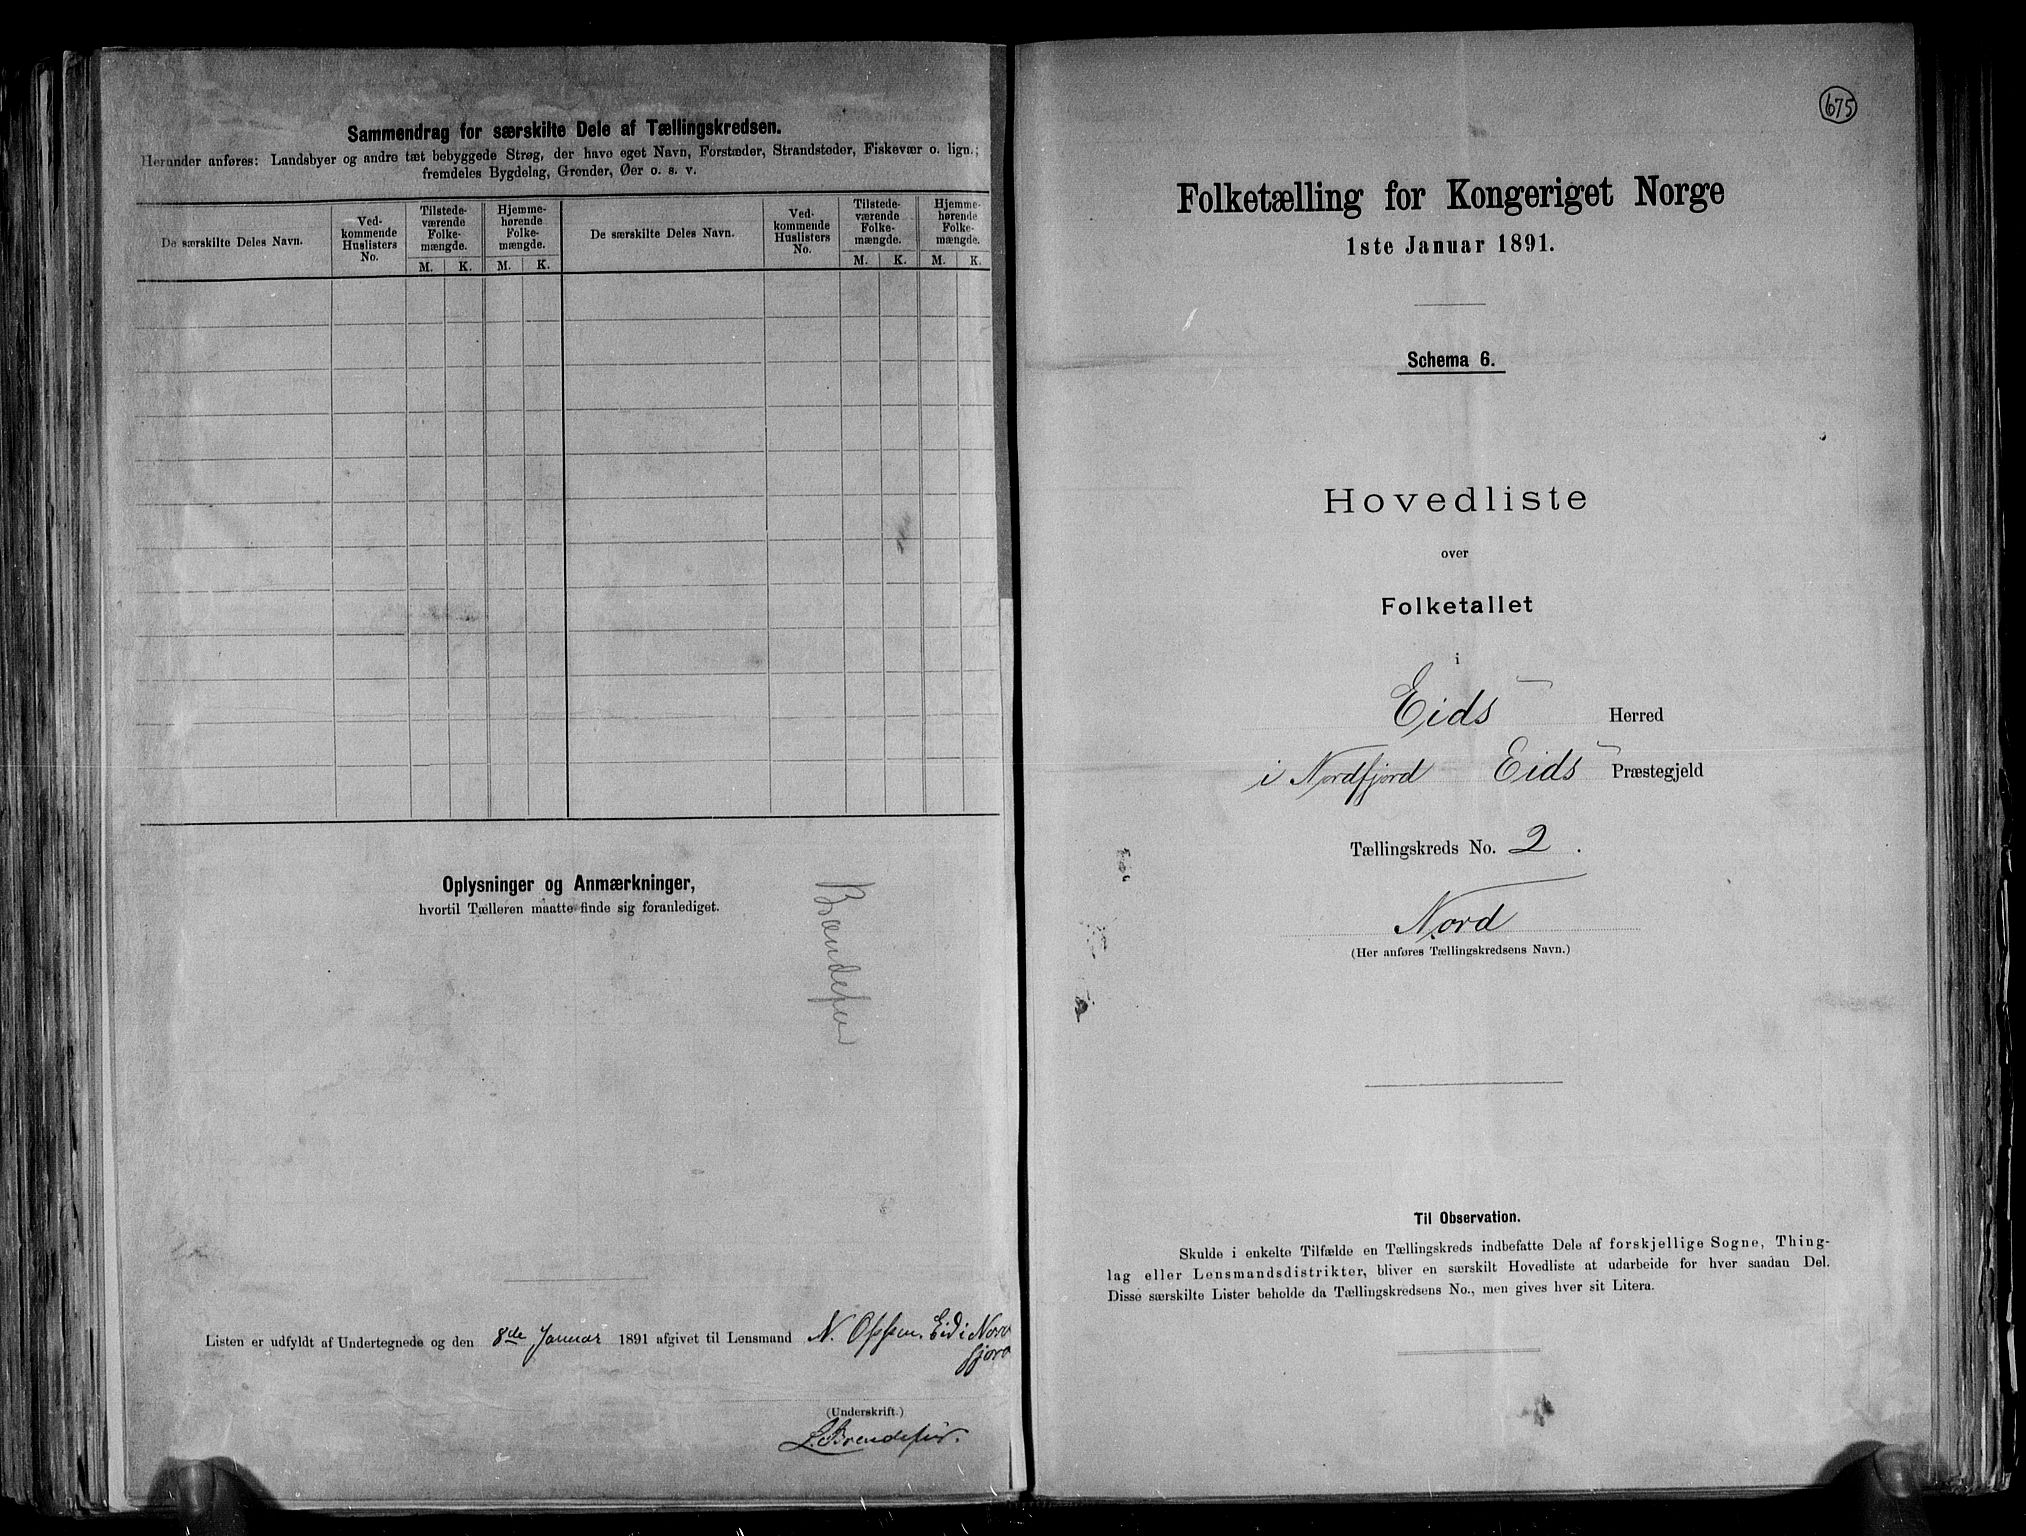 Sammendrag for særskilte Dele af Tællingskredsen.
Herunder anføres: Landsbyer og andre tæt bebyggede Strøg, der have eget Navn, Forstæder, Strandsteder, Fiskevær o. lign.;
fremdeles Bygdelag, Grender, Øer o. s. v.
De særskilte Deles Navn.
Ved-
kommende
Huslisters
No.
Tilstede-
værende
Folke-
mængde.
M. K.
Hjemme-
hørende
Folke-
mængde.
M. K.
De særskilte Deles Navn.
Ved-
kommende
Huslisters
No.
Tilstede-
værende
Folke-
mængde.
M. K.
Hjemme-
hørende
Folke-
mængde.
M. K.
Oplysninger og Anmærkninger,
hvortil Tælleren maatte finde sig foranlediget.
Listen er udfyldt af Undertegnede og den 8de Januar 1891 afgivet til Lensmand N. Eid i Nord
fjord
(Underskrift.)
675
Folketælling for Kongeriget Norge
1ste Januar 1891.
Schema 6.
Hovedliste
over
Folketallet
i
Eids Herred
i Nordfjord Eids Præstegjeld
Tællingskreds No. 2.
Nord
(Her anføres Tællingskredsens Navn.)
Til Observation.
Skulde i enkelte Tilfælde en Tællingskreds indbefatte Dele af forskjellige Sogne, Thing-
lag eller Lensmandsdistrikter, bliver en særskilt Hovedliste at udarbeide for hver saadan Del.
Disse særskilte Lister beholde da Tællingskredsens No., men gives hver sit Litera.